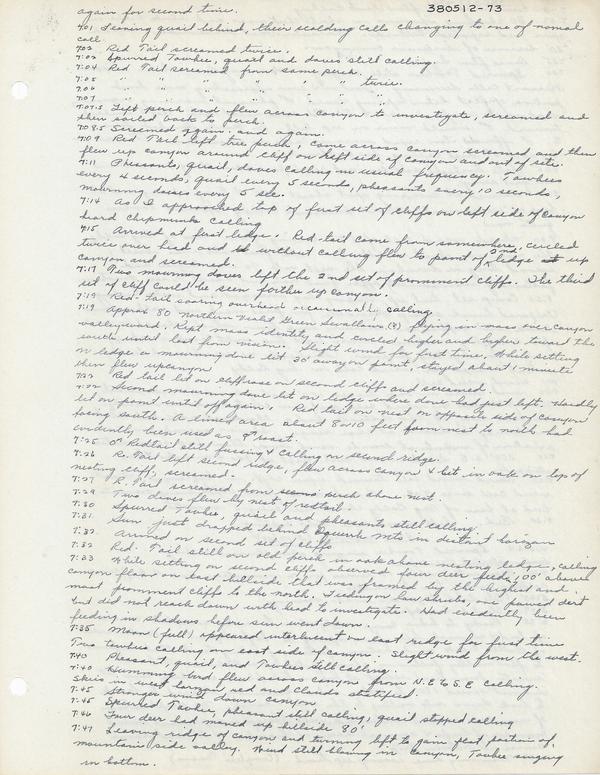 380512-73
again for second time.
7:01 Leaving quail behind, their scolding calls changing to one of normal
call.
7:02 Red Tail screamed twice.
7:03 Spurred Towhee, quail and doves still calling.
7:04 Red Tail screamed from same perch.
7:05 " " " " " " twice.
7:06 " " " " " "
7:07 " " " " " "
7:07.5 Left perch and flew across canyon to investigate, screamed and
then sailed back to perch.
7:08.5 Screamed again, and again.
7:09 Red Tail left tree perch, came across canyon screamed and then
flew up canyon around cliff on left side of canyon and out of site.
7:11 Pheasants, quail, doves calling in usual frequency. Towhees
every 4 seconds, quail every 5 seconds, pheasants every 10 seconds,
mourning doves every 5 sec.
7:14 As I approached top of first set of cliffs on left side of canyon
heard chipmunks calling
7:15 Arrived at first ledge. Red-tail came from somewhere, circled
twice over head and without calling flew to point of 2nd ledge up
canyon and screamed.
7:17 Two mourning doves left the 2nd set of prominent cliffs. The third
set of cliff could be seen farther up canyon.
7:19 Red-tail soaring overhead occasionally calling.
7:19 Approx 80 Northern Violet Green Swallows (?) flying in mass over canyon
valleyward. Kept mass identity and circled higher and higher toward the
south until lost from vision. Slight wind for first time. While setting
on ledge a mourning dove lit 30' away on point, stayed about 1 minute
then flew upcanyon
7:22 Red tail lit on cliffrose on second cliffs and screamed.
7:22 Second mourning dove lit on ledge where dove had just left. Hardly
lit on point until off again. Red tail on nest on opposite side of canyon
facing south. A limed area about 8 or 10 feet from nest to north had
evidently been used as roost.
7:25 ♂ Redtail still fussing & calling on second ridge.
7:26 R. Tail left second ridge, flew across canyon & lit in oak on top of
nesting cliff, screamed.
7:27 R. Tail screamed from perch above nest.
7:29 Two doves flew by nest of redtail.
7:30 Spurred Towhee, quail and pheasants still calling.
7:31 Sun just dropped behind Oquirrh Mts in distant horizon
7:32 Arrived on second set of cliffs
7:32 Red-Tail still on old perch in oak above nesting ledge, calling
7:33 While setting on second cliffs observed four deer feeding 100' above
canyon floor on east hillside that was framed by the highest and
most prominent cliffs to the north. Feeding on low shrubs, one pawed dirt
but did not reach down with head to investigate. Had evidently been
feeding in shadows before sun went down.
7:35 Moon (full) appeared on east ridge for first time
Two towhees calling on east side of canyon. Slight wind from the west.
7:40 Pheasant, quail, and Towhees still calling.
7:40 Humming bird flew across canyon from N.E to S.E calling.
Skies in west horizon, red and clouds stratified.
7:45 Stronger wind down canyon
7:45 Spurred Towhee, pheasant still calling, quail stopped calling
7:46 Four deer had moved up hillside 80'
7:47 Leaving ridge of canyon and turning left to gain flat portion of,
mountain side valley. Wind still blowing in canyon, Towhee singing
in bottom.